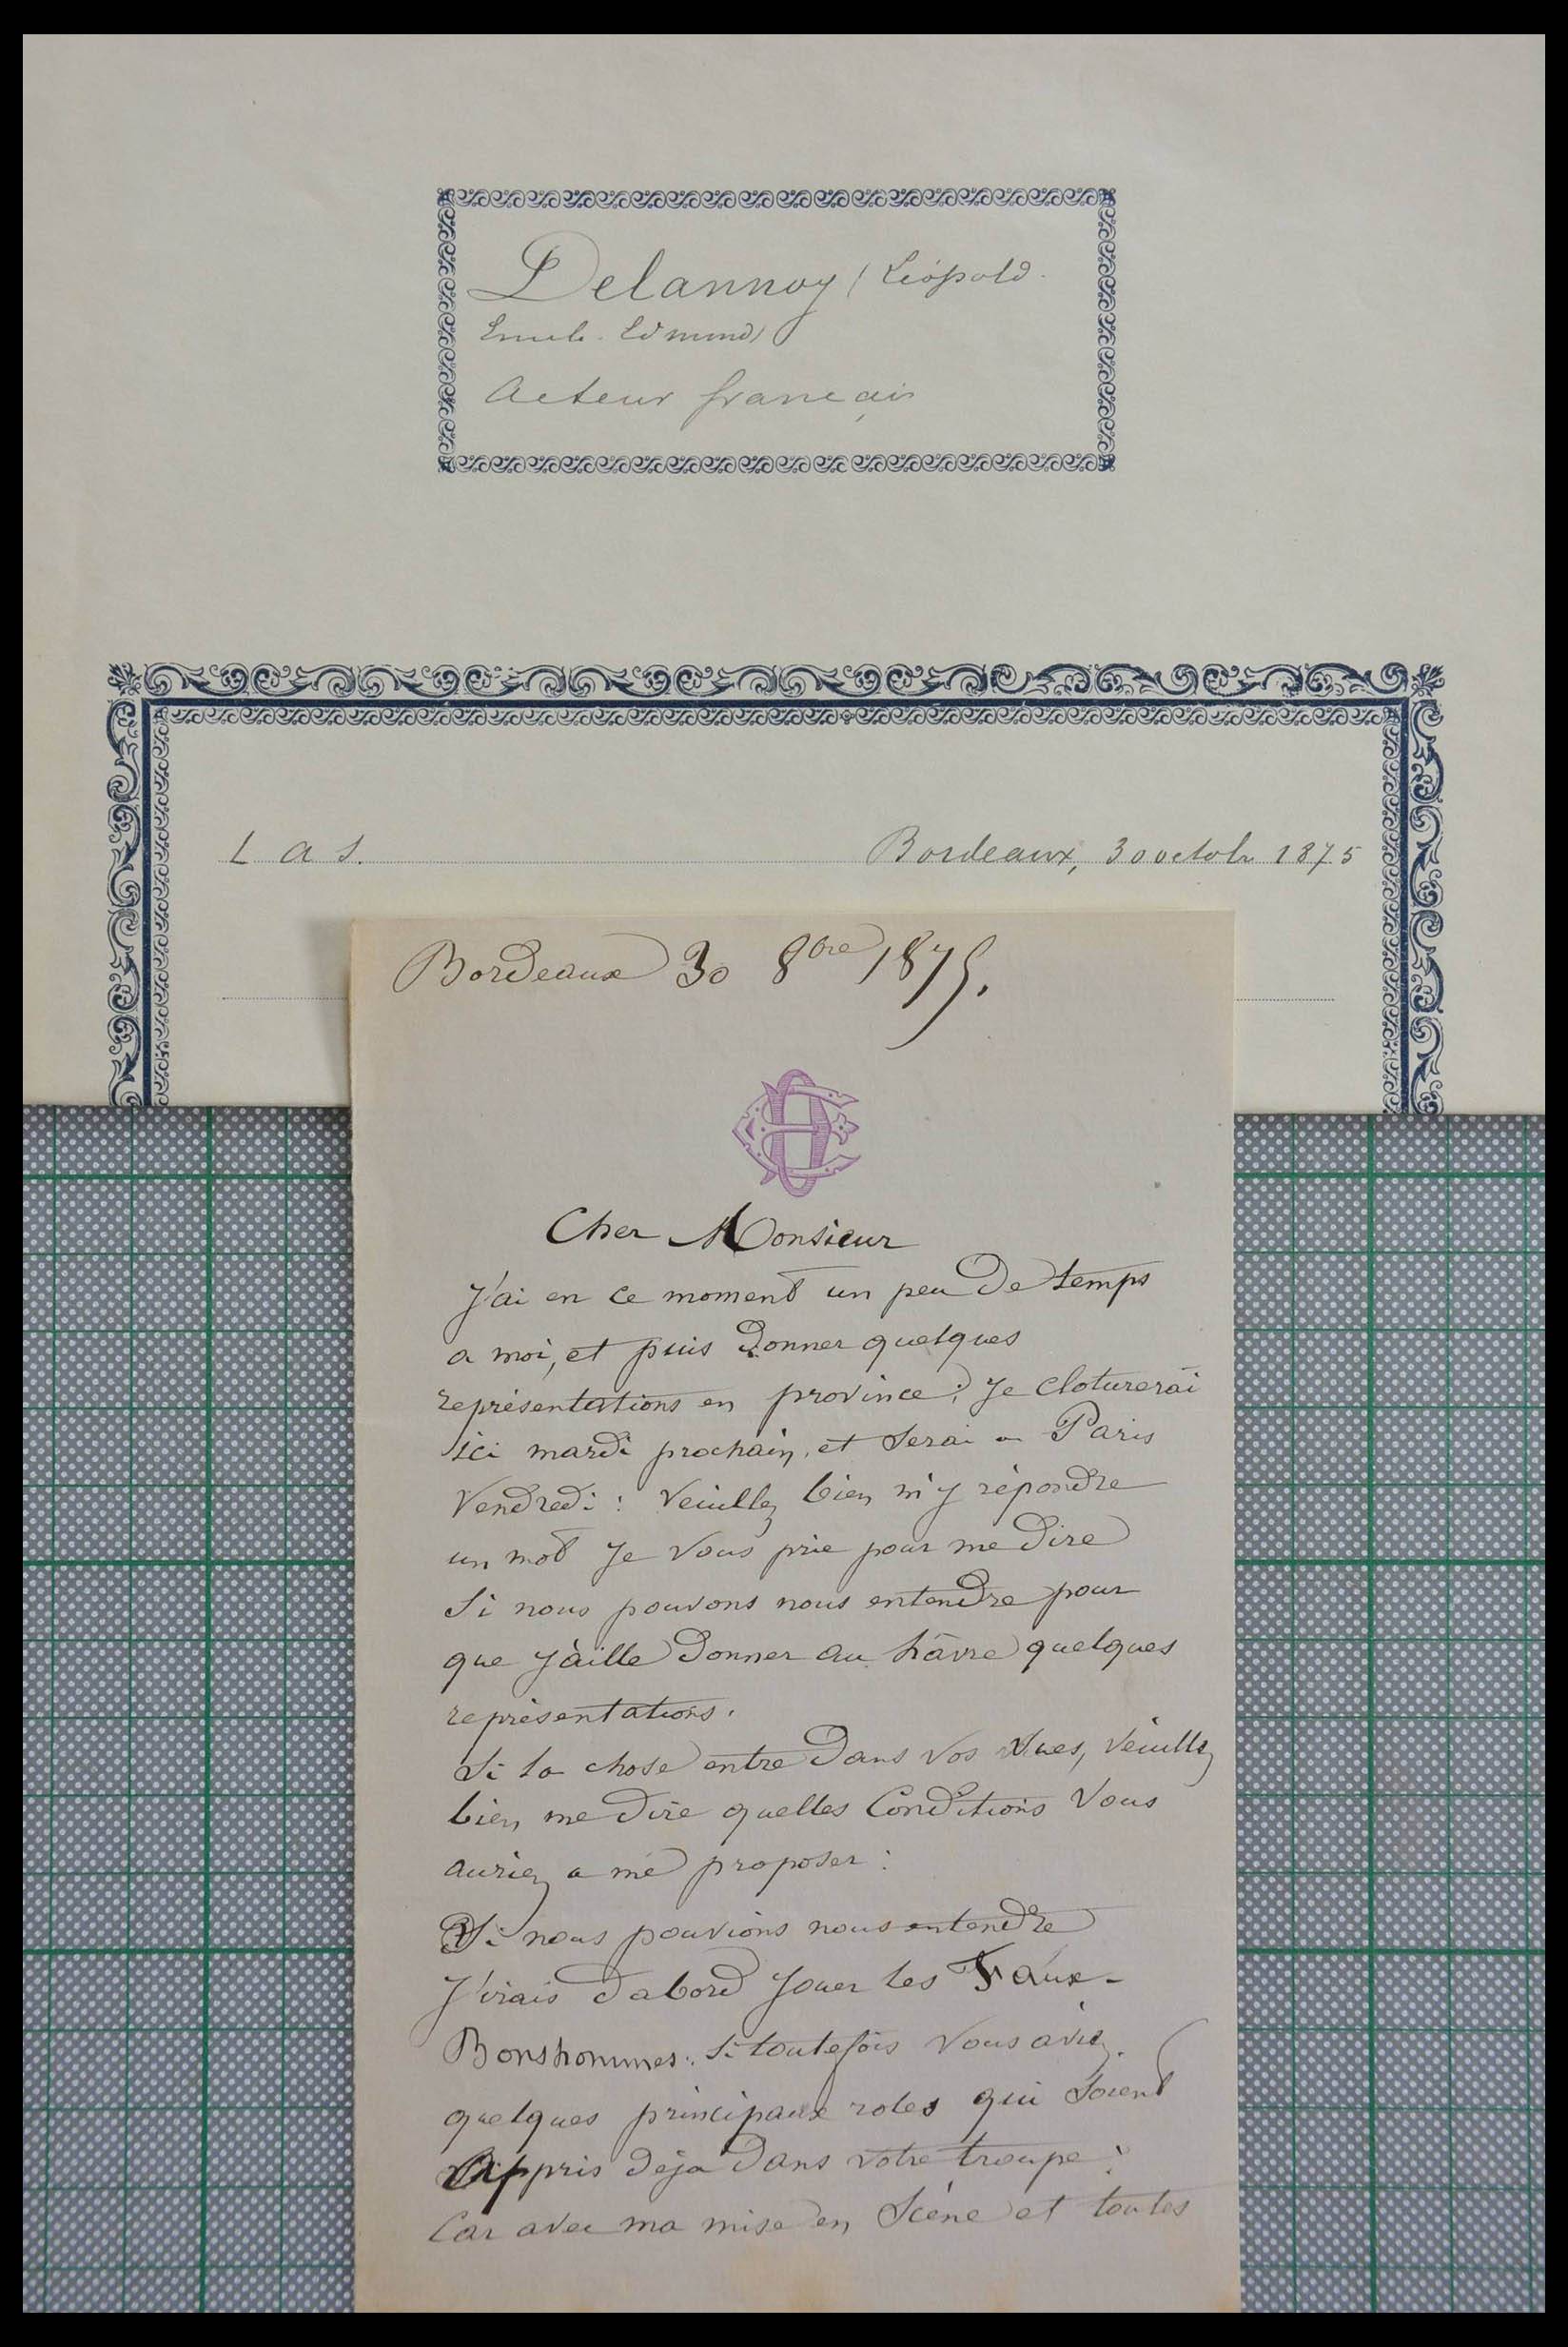 Delannoy (Léopold
Emile. Edmond)
Acteur français
L a s. Bordeaux, 30 octobre 1875
Bordeaux 30 8bre 1875.
Cher Monsieur
J'ai en ce moment un peu de temps
a moi, et puis donner quelques
représentations en province; je cloturerai
ici mardi prochain, et serai a Paris
Vendredi : Veuillez bien m'y répondre
un mot je vous prie pour me dire
Si nous pouvons nous entendre pour
que j'aille donner au hâvre quelques
représentations.
Si la chose entre dans vos vues, veuillez
bien me dire quelles Conditions Vous
auriez a me proposer :
Si nous pouvions nous entendre
j'irais d'abord jouer les Faux-
Bonshommes : si toutefois vous aviez
quelques principaux roles qui soient
appris déja dans votre troupe :
Car avec ma mise en Scène et toutes